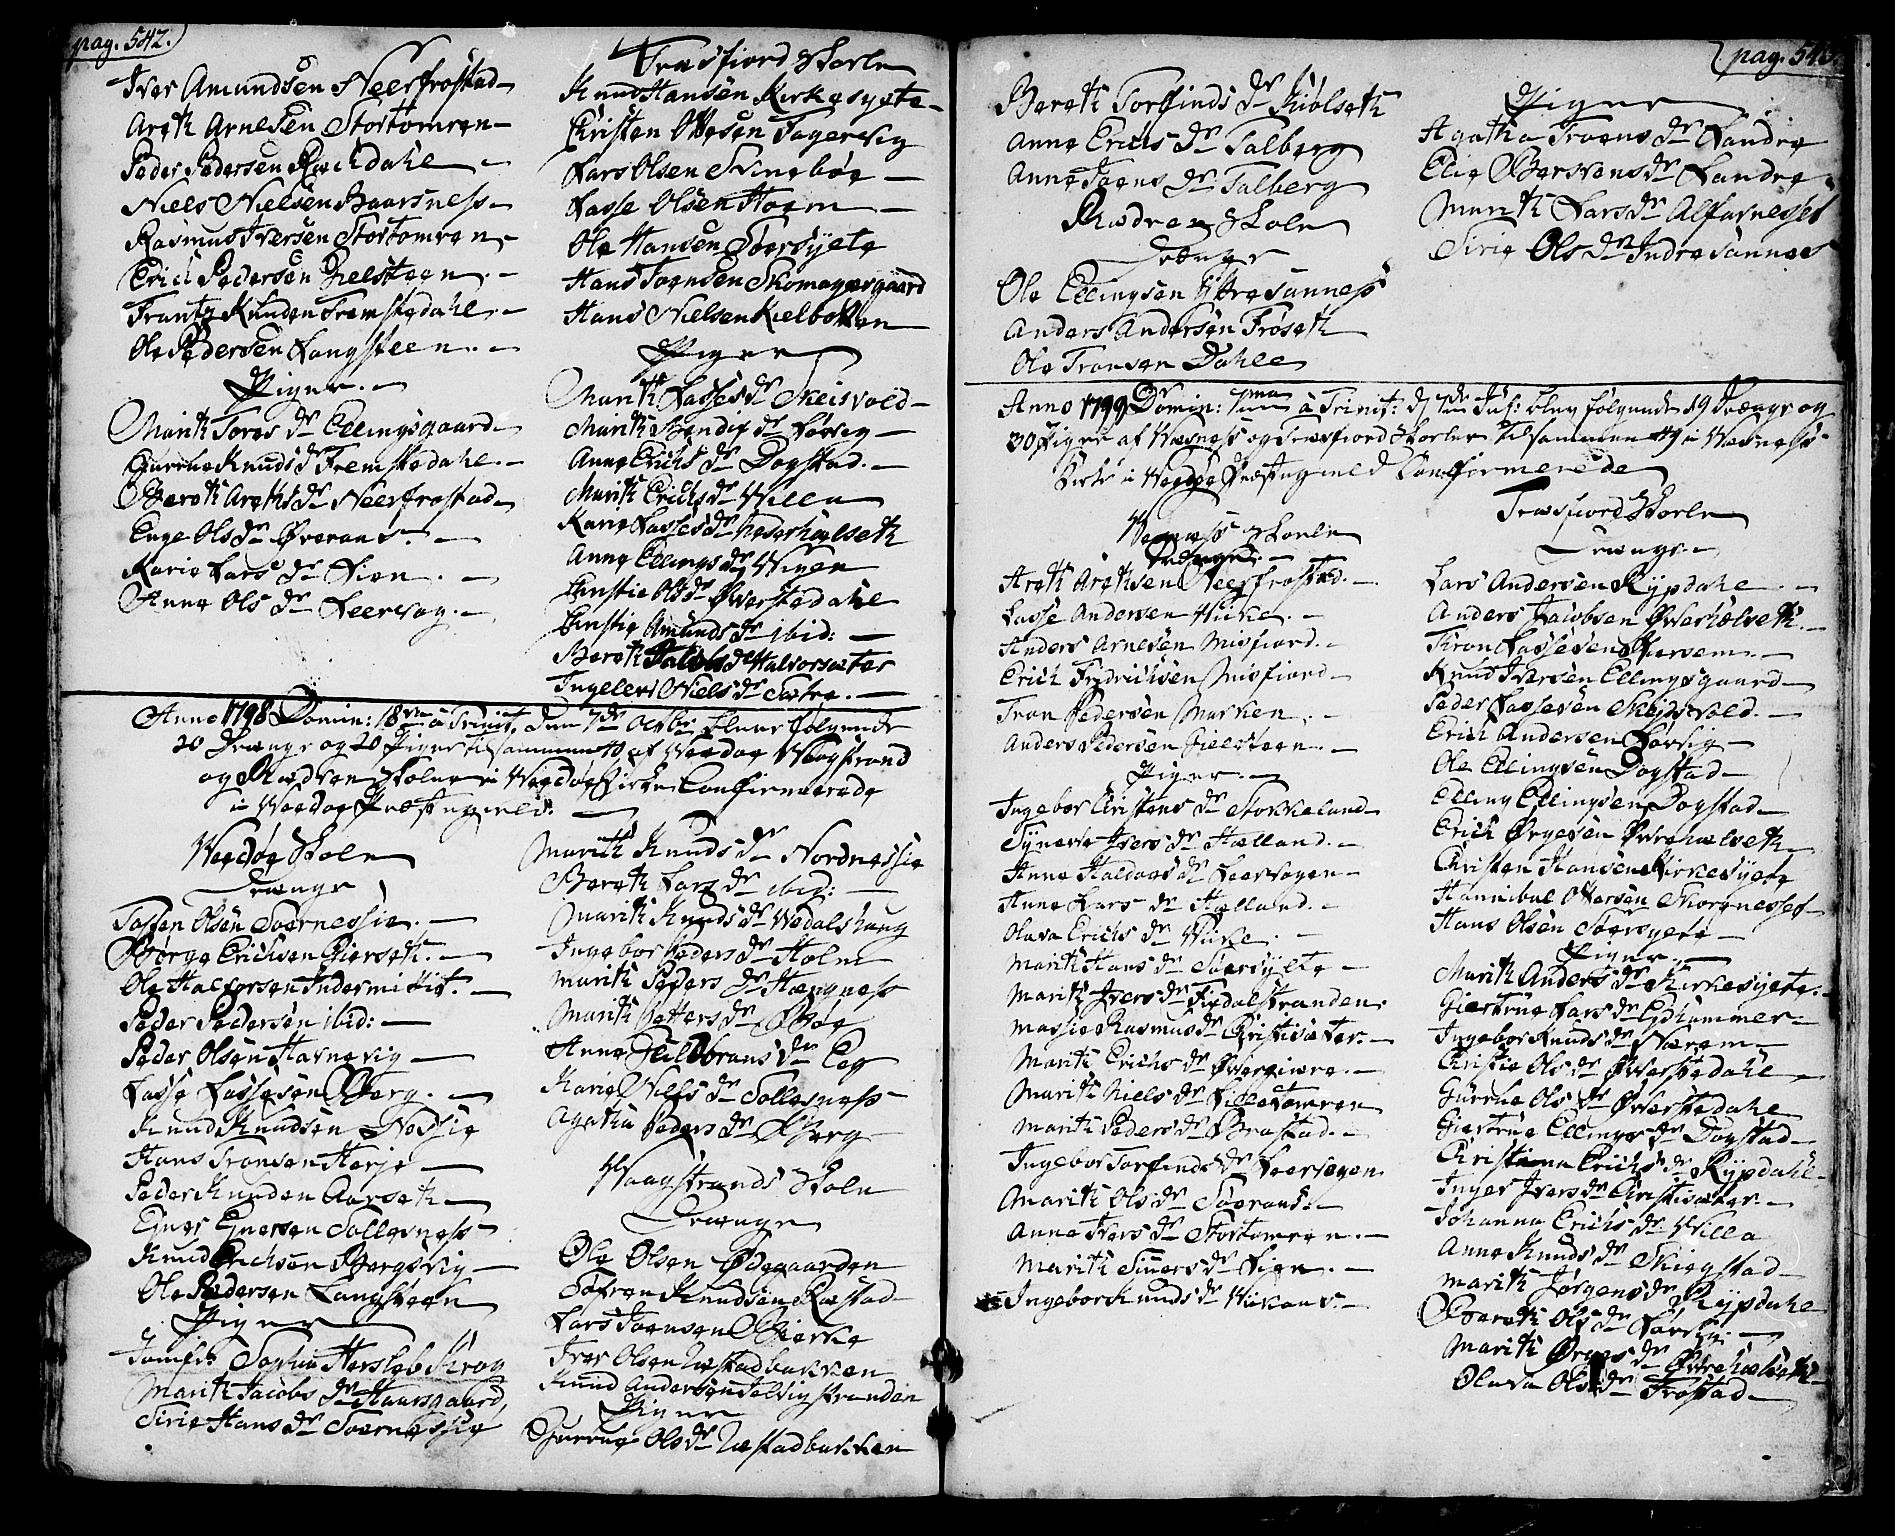 pag. 542.
Iver Amundsen Neerfrostad
Areth Arnesen Stortomren
Peder Pedersen Rochdahl
Niels Nielsen Baarsness
Rasmus Iversen Stortomren
Erich Pedersen Hielsteen
Frantz Knuden Fremstedahl
Ole Pedersen Langsteen
Piger
Marith Tores Dr Ellingsgaard
Guroe Knuds Dr Fremstedahl
Bereth Areths Dr Neerfrostad
Enge Ols Dr Øveraas
Karie Lars Dr Lien
Anne Ols Dr Leervog
Tresfiord Skole
Knud Hansen Kirkesyete
Christen Ottesen Fagervig
Lars Olsen Svinebøe
Lasse Olsen Hoem
Ole Hansen Søersyete
Hans Joensen Skomagergaard
Hans Nielsen Kielbotten
Piger
Marith Lasses Dr Skeisvold
Marith Bendix Dr Løvig
Anne Erichs Dr Dogstad
Marith Erichs Dr Villa
Karie Lasses Dr Nederhielseth
Anne Ellings Dr Vigen
Christie Ols Dr Øverstedahl
Christie Amunds Dr ibid:
Bereth Jacobs Dr Halvorsæter
Ingeler Niels Dr Sætre
Anno 1798 Domin: 18va a Trinit, den 7de Octbr. bleve følgende
20 Drænge og 20 Piger tilsammen 40 af Veedøe Vaagstrand
og Rødven Skoler i Veedøe Kirke Confirmerede
i Veedøe Præstegield.
Veedøe Skole
Drænge
Toften Olsen Soernessie
Børge Erichsen Gierseth
Ole Halvorsen Indermitet
Peder Pedersen ibid:
Peder Olsen Havnevig
Lasse Lassesen Berg
Knud Knudsen Nessie
Hans Tronsen Herje
Peder Knuden Aarseth
Einer Enersen Sollesness
Knud Erichsen Bergsvig
Ole Pedersen Langsteen
Piger
Jomfr. Sophia Hersleb Krog
Marith Jacobs Dr Haarsgaard
Sirie Hans Dr Soernessie
Marith Knuds Dr Nordnessie
Bereth Lars Dr ibid:
Marith Knuds Dr Vedalshaug
Ingebor Peders Dr Holm
Marith Peders Dr Hegness
Marith Petters Dr Bøe
Anne Hildbrans Dr Eeg
Karie Niels Dr Sollesness
Agatha Peders Dr Berg
Vaagstrands Skole
Drænge
Ole Olsen Ødegaarden
Toften Knudsen Restad
Lars Joensen Bierke
Iver Olsen Næstadbakken
Knud Andersen Solvigstranden
Piger
Guroe Ols Dr Næstadbakken
pag. 543.
Bereth Torfinds Dr Kiølseth
Anne Erichs Dr Talberg
Anne Joens Dr Talberg
Rødven Skole
Drænge
Ole Ellingsen Ytresanness
Anders Andersen Frøseth
Ole Tronsen Dahle
Piger
Agatha Troens Dr Landre
Elie Bersvens Dr Landre
Marith Lars Dr Alfarnesset
Sirie Ols Dr Indresannes
Anno 1799 Domin: 7ma a Trinit: d 7de Jul: blev følgende 19 Drænge og
30 Piger af Væness og Tresfiord Skoler tilsammen 49 i Væness
Kirke i Veedøe Præstegield Confirmerede
Væness Skole
Drænge
Areth Arethsen Neerfrostad
Lasse Andersen Viike
Anders Arnesen Misfiord
Erich Fridrichsen Misfiord
Tron Pedersen Marken
Anders Pedersen Hielsteen
Piger
Ingebor Christens Dr Stokkeland
Synneve Ivers Dr Helland
Anne Haldoers Dr Leervogen
Anne Lars Dr Helland
Olava Erichs Dr Viike
Marith Hans Dr Søersyete
Marith Ivers Dr Sixdalstranden
Massie Rasmus Dr Christisæter
Marith Erichs Dr Øvergiere
Marith Niels Dr Lilletomren
Marith Peders Dr Brastad
Ingebor Torfinds Dr Leervogen
Marith Ols Dr Søeraas
Anne Ivers Dr Stortomren
Marith Siurs Dr Lien
Ingebor Knuds Dr Vikaas
Tresfiord Skole
Drænge
Lars Andersen Rypdahl
Anders Jacobsen Øverhielseth
Tron Lassesen Kiersem
Knud Iversen Ellingsgaard
Peder Lassesen Skeisvold
Erich Andersen Løvig
Ole Ellingsen Dogstad
Elling Ellingsen Dogstad
Erich Ørgesen Øvrehielseth
Christen Hansen Kirkesyete
Hannibal Ottesen Skorgnesset
Hans Olsen Søersyete
Piger
Marith Anders Dr Kirkesyete
Giertrue Lars Dr Eidhammer
Ingebor Knuds Dr Nærem
Christie Ols Dr Øverstedahl
Guroe Ols Dr Øverstedahl
Giertrue Ellings Dr Dogstad
Christina Erichs Dr Rypdahl
Inger Ivers Dr Christisæter
Johanna Erichs Dr Villa
Anne Knuds Dr Skiegstad
Marith Jørgens Dr Rypdahl
Bereth Ols Dr Løvig
Marith Ørges Dr Øvrehielseth
Olava Ols Dr Frostad